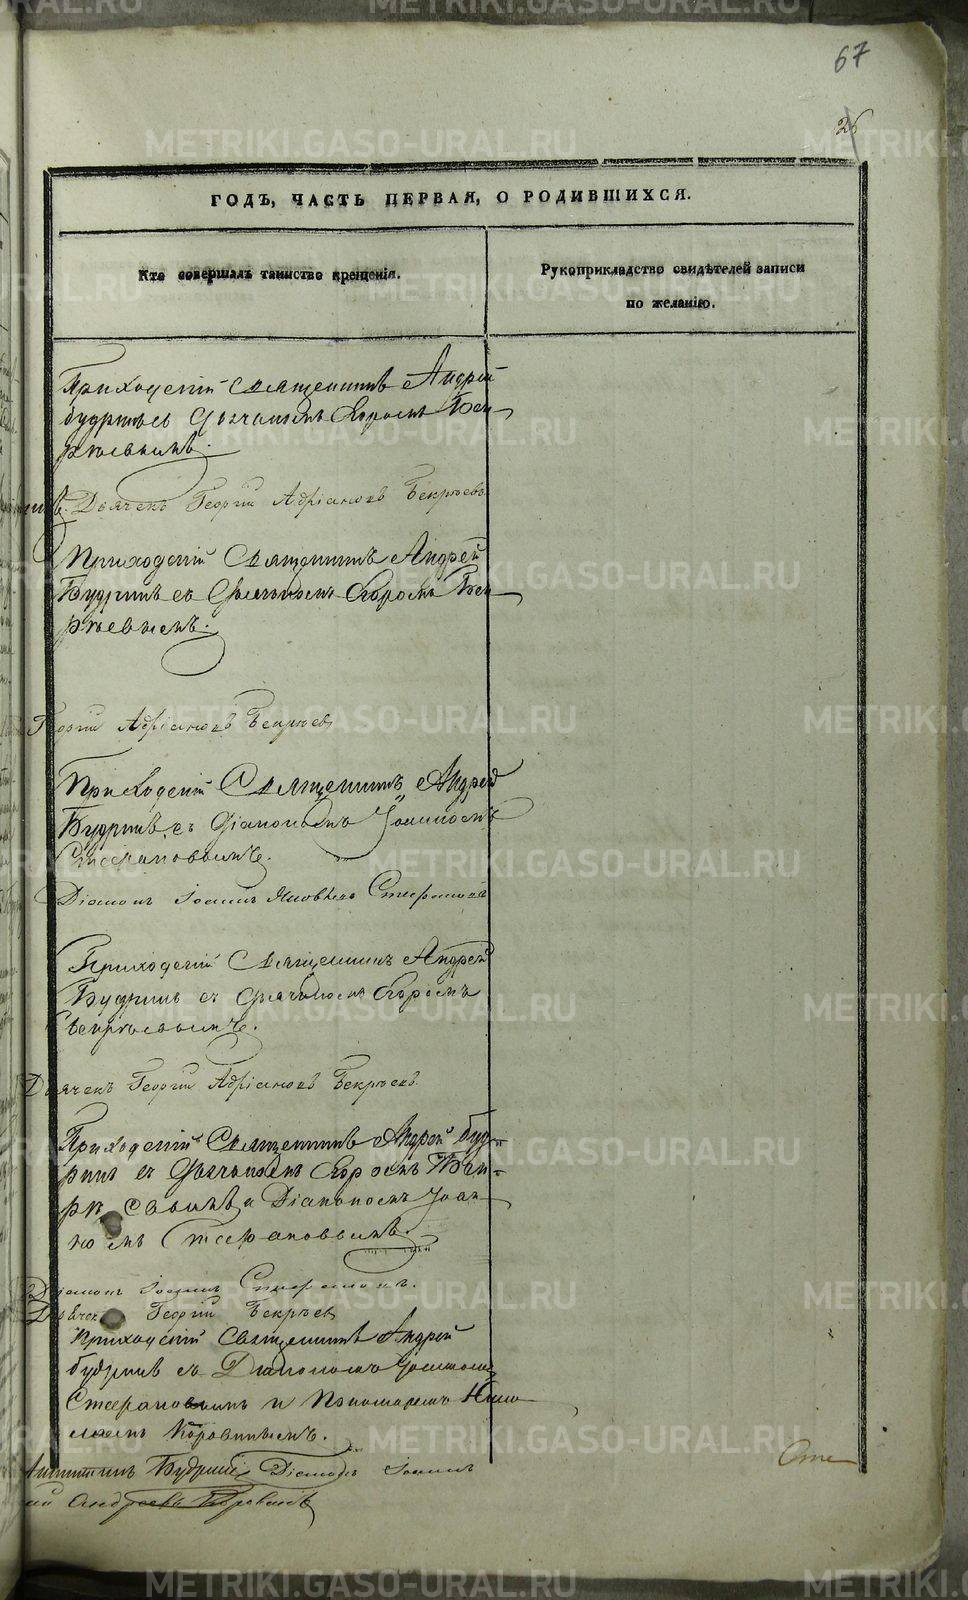 67
26
ГОДЪ, ЧАСТЬ ПЕРВАЯ, О РОДИВШИХСЯ.
Кто совершалъ таинство крещенія.
Рукоприкладство свидѣтелей записи
по желанію.
Приходскій Священникъ Андрей
Будринъ съ Дьячкомъ Егоромъ Бек
рѣевымъ.
Дьячекъ Георгій Адріановъ Бекрѣевъ
Приходскій Священникъ Андрей
Будринъ съ Дьячкомъ Егоромъ Бек
рѣевымъ.
Георгій Адріановъ Бекрѣевъ
Приходскій Священникъ Андрей
Будринъ съ Діакономъ Іоанномъ
Стефановымъ.
Діаконъ Іоаннъ Яковлевъ Стефановъ
Приходскій Священникъ Андрей
Будринъ съ Дьячкомъ Егоромъ
Бекрѣевымъ.
Дьячекъ Георгій Адріановъ Бекрѣевъ
Приходскій Священникъ Андрей Буд-
ринъ съ Дьячкомъ Егоромъ Бек-
рѣевымъ и Діакономъ Іоан
номъ Стефановымъ.
Діаконъ Іоаннъ Стефановъ.
Дьячекъ Георгій Бекрѣевъ
Приходскій Священникъ Андрей
Будринъ съ Діакономъ Іоанномъ
Стефановымъ и Пономаремъ Нико
лаемъ Коровинымъ.
Будринъ Діаконъ Іоаннъ
Андреевъ Коровинъ
METRIKI.GASO-URAL.RU